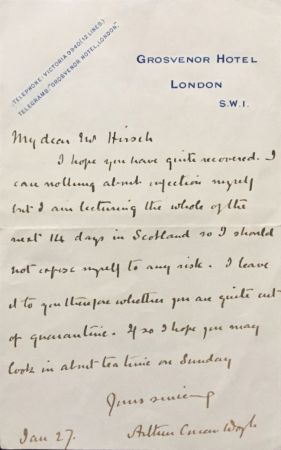 TELEPHONE: VICTORIA 9940 (12 LINES)
TELEGRAMS: "GROSVENOR HOTEL, LONDON."
GROSVENOR HOTEL
LONDON
S.W.1.
My dear Mr Hirsch
I hope you have quite recovered. I
care nothing about infection myself
but I am lecturing the whole of the
next 14 days in Scotland so I should
not expose myself to any risk. I leave
it to you therefore whether you are quite out
of quarantine. If so I hope you may
look in about tea time on Sunday
Yours sincerely
Arthur Conan Doyle
Jan 27.